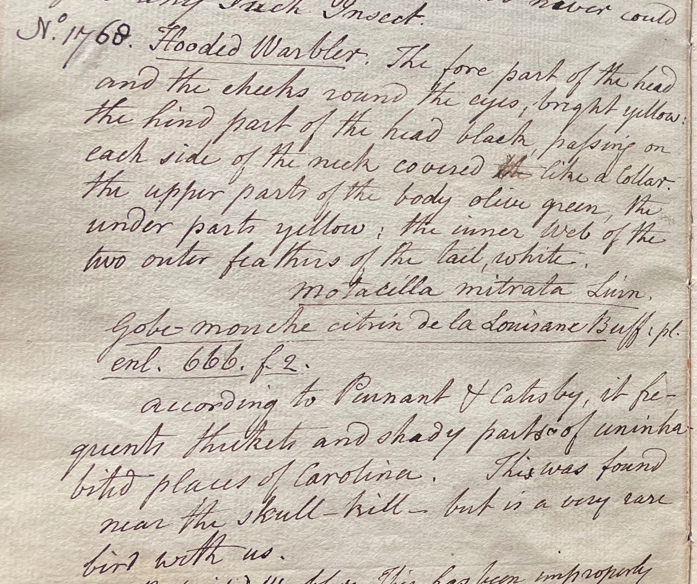 any such Insect. never could
No. 1768. Hooded Warbler. The fore part of the head
and the cheeks round the eyes, bright yellow:
the hind part of the head black, passing on
each side of the neck covered like a Collar.
the upper parts of the body olive green, the
under parts yellow; the inner Web of the
two outer feathers of the tail, white.
Motacilla mitrata Linn.
Gobe-mouche citrin de la Louisane Buff. pl.
enl. 666. f. 2.
according to Pennant & Catesby, it fre-
quents thickets and shady parts of uninha-
bited places of Carolina. This was found
near the skull-kill- but is a very rare
bird with us.
This has been improperly